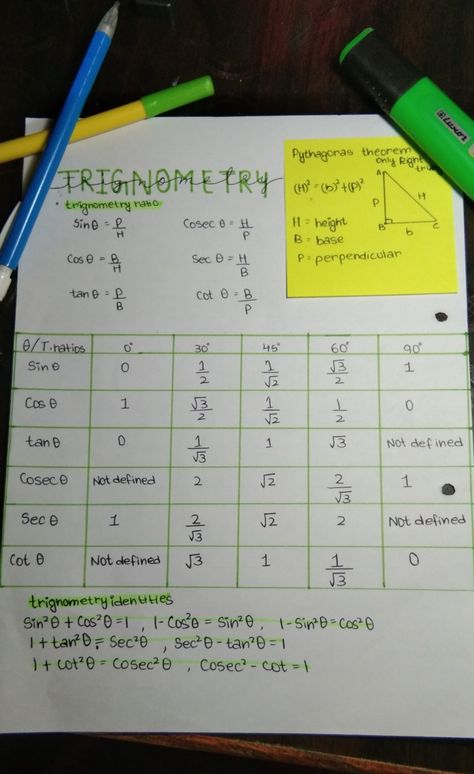 TRIGNOMETRY
• trignometry ratio
Sinθ = P/H Cosec θ = H/P
Cosθ = B/H Sec θ = H/B
tanθ = P/B Cot θ = B/P
Pythagoras theorem
Only Right
A
(H)² = (b)² + (P)²
P H
B b C
H = height
B = base
P = perpendicular
θ/T.ratios 0° 30° 45° 60° 90°
Sin θ 0 1/2 1/√2 √3/2 1
Cos θ 1 √3/2 1/√2 1/2 0
tan θ 0 1/√3 1 √3 Not defined
Cosec θ Not defined 2 √2 2/√3 1
Sec θ 1 2/√3 √2 2 Not defined
Cot θ Not defined √3 1 1/√3 0
trignometry identities
Sin²θ + Cos²θ = 1 , 1-Cos²θ = Sin²θ , 1-Sin²θ = Cos²θ
1 + tan²θ = Sec²θ , Sec²θ - tan²θ = 1
1 + cot²θ = Cosec²θ , Cosec² - Cot = 1